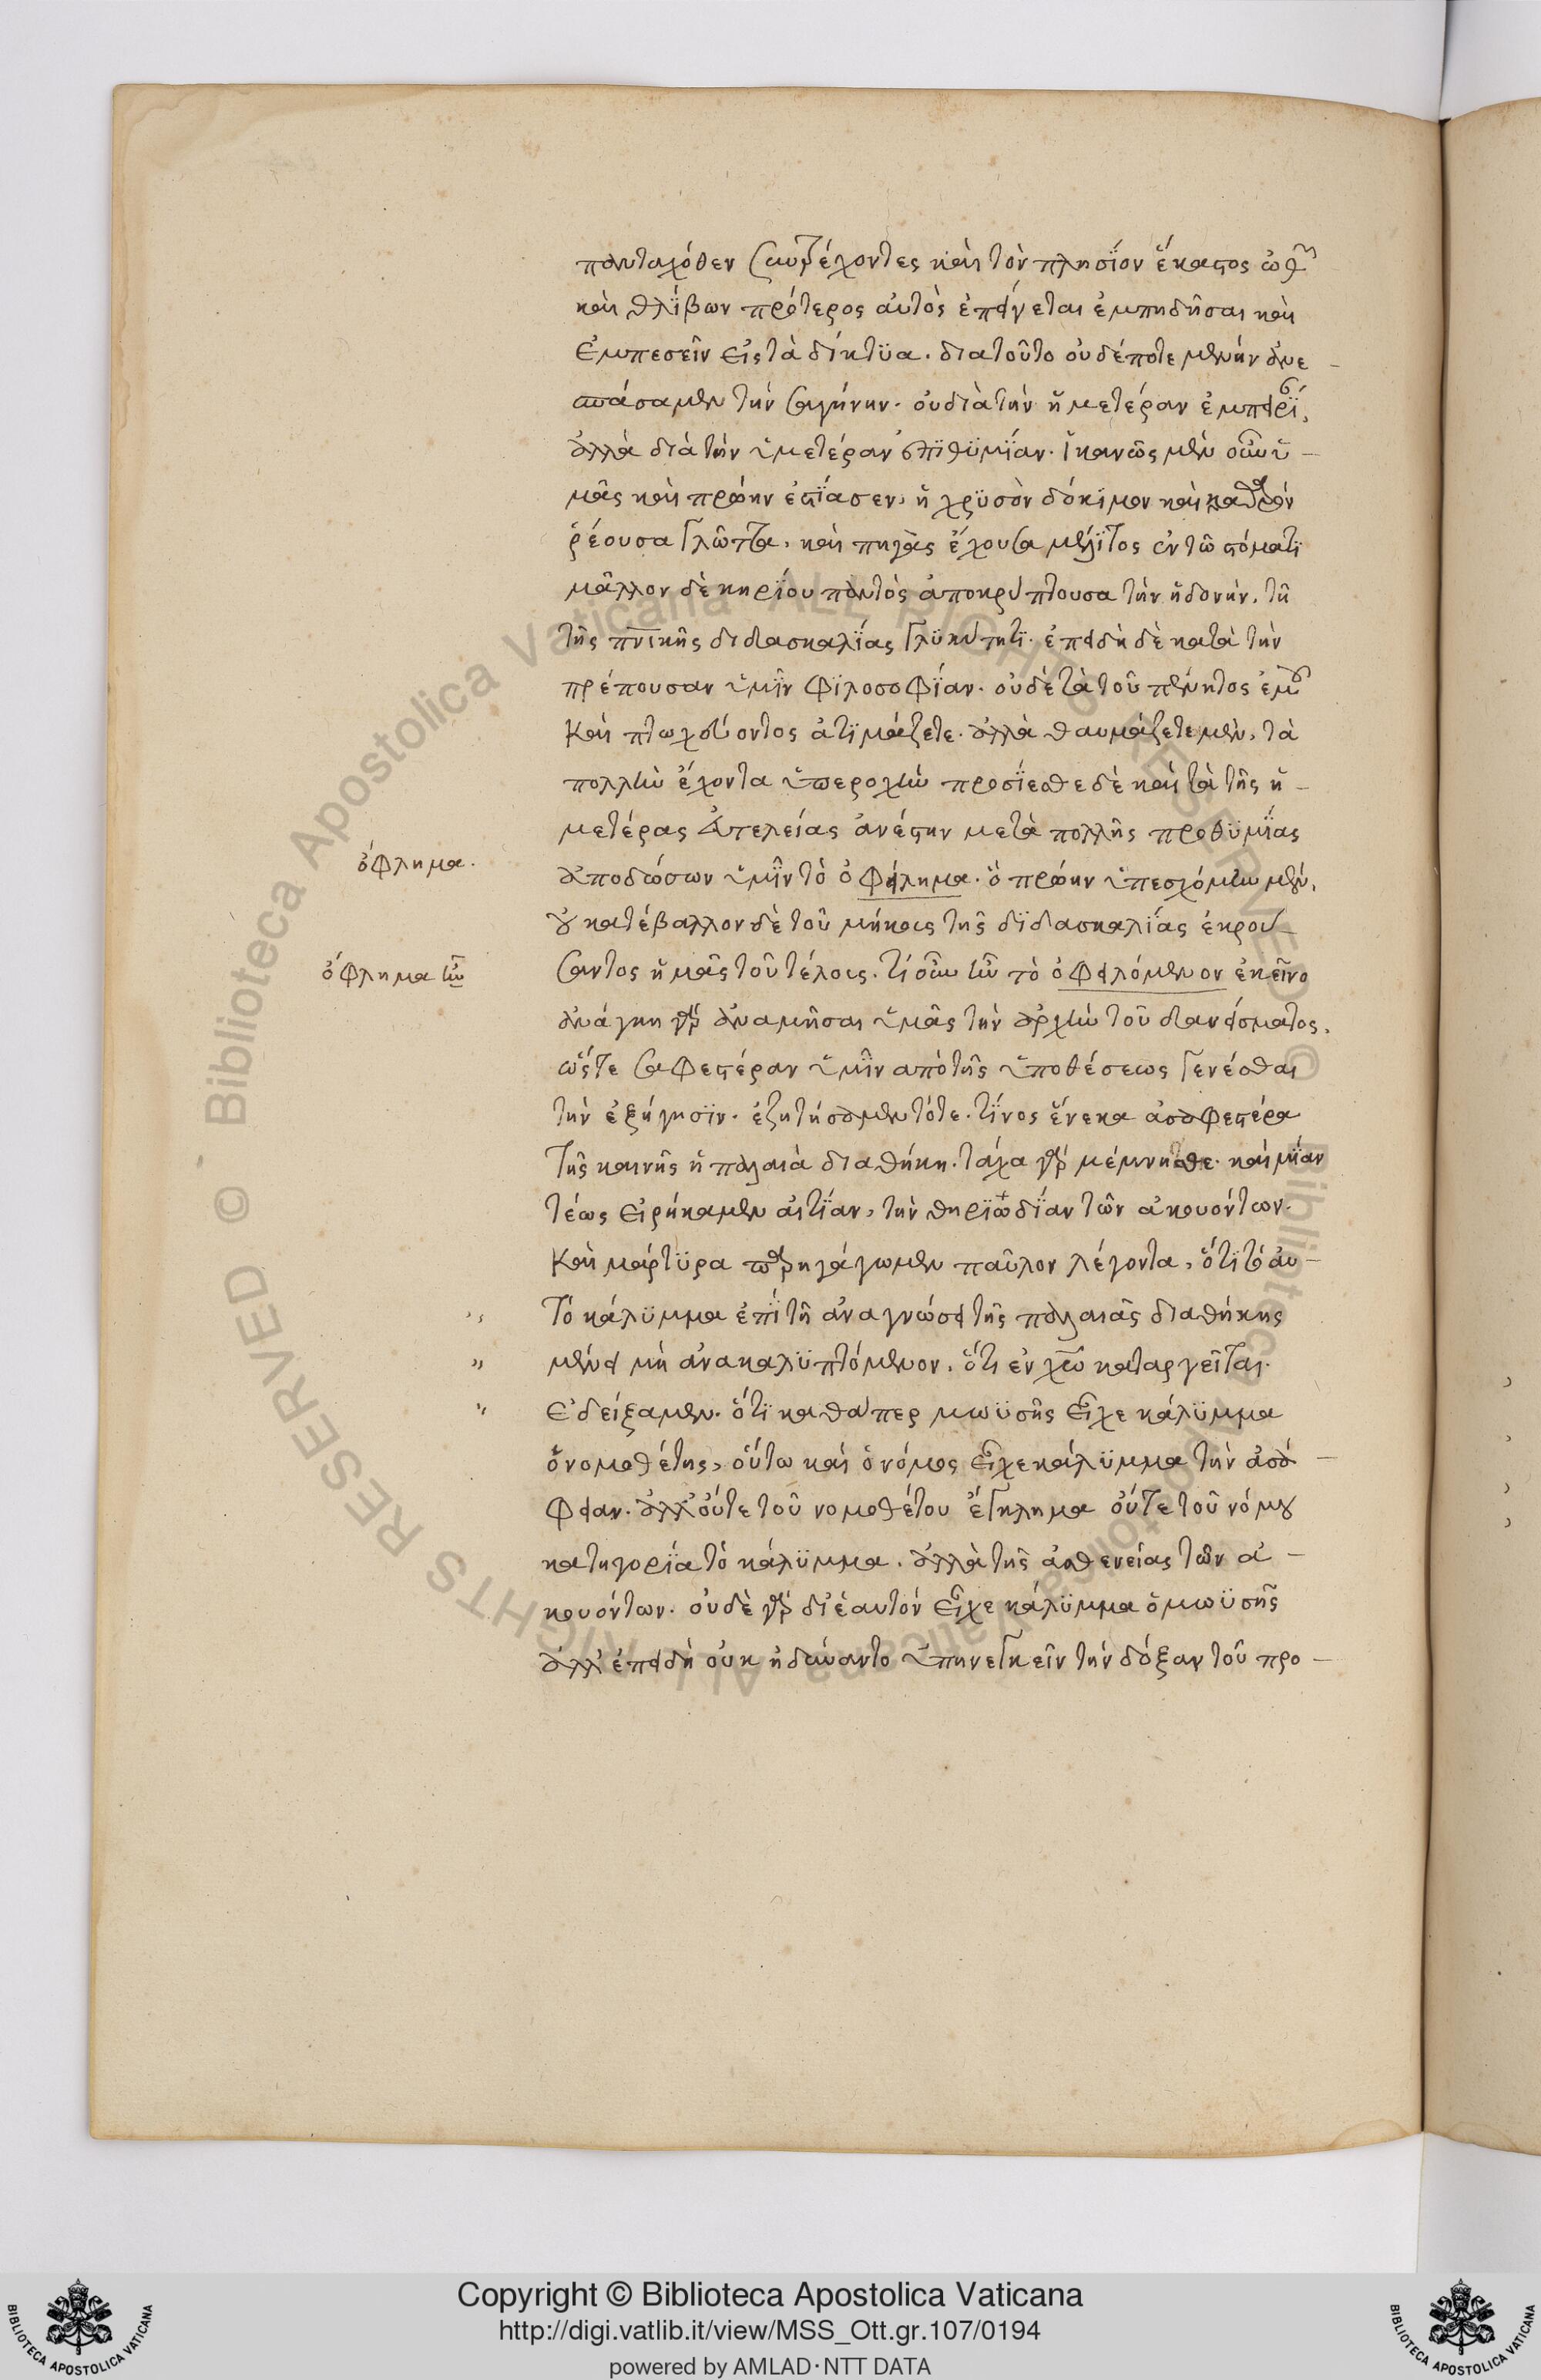 πανταχόθεν συντρέχοντες καὶ τὸν πλησΐον ἕκαστος ὠθῶν
καὶ θλΐβων πρότερος αὐτὸς ἐπείγεται ἐμπηδῆσαι καὶ
ἐμπεσεῖν εἰς τὰ δίκτϋα. διατοῦτο οὐδέποτε κενὴν ἀνε-
σπάσαμεν τὴν σαγήνην. οὐ διὰ τὴν ἡμετέραν ἐμπειρΐαν,
ἀλλὰ διὰ τὴν ὑμετέραν ἐπϊθϋμΐαν. ἱκανῶς μὲν οὖν ὑ-
μᾶς καὶ πρώην ἑστΐασεν, ἡ χρϋσὸν δόκϊμον καὶ καθαρὸν
ῥέουσα γλῶττα, καὶ πηγὰς ἔχουσα μέλϊτος ἐν τῶ στόματϊ
μᾶλλον δὲ κηρΐου παντὸς ἀποκρύπτουσα τὴν ἡδονὴν, τῆ
τῆς πνικῆς διδασκαλΐας γλϋκύτητϊ. ἐπειδὴ δὲ κατὰ τὴν
πρέπουσαν ὑμῖν φϊλοσοφΐαν. οὐδὲ τὰ τοῦ πένητος ἐμοῦ
καὶ πτωχεύοντος ἀτϊμάζετε. ἀλλὰ θαυμάζετε μὲν, τὰ
πολλὴν ἔχοντα ὑπεροχὴν προσΐεσθε δὲ καὶ τὰ τῆς ἡ-
μετέρας εὐτελείας ἀνέστην μετὰ πολλῆς προθϋμΐας
ὄφλημα.
ἀποδώσων ὑμῖν τὸ ὀφείλημα. ὃ πρώην ὑπεσχόμην μὲν,
οὐ κατέβαλλον δὲ τοῦ μήκους τῆς δϊδασκαλΐας ἐκρού-
ὄφλημα ἦν
σαντος ἡμᾶς τοῦ τέλους. τί οὖν ἦν τὸ ὀφειλόμενον ἐκεῖνο
ἀνάγκη γὰρ ἀναμνῆσαι ὑμᾶς τὴν ἀρχὴν τοῦ δανείσματος,
ὥστε σαφεστέραν ὑμῖν ἀπὸ τῆς ὑποθέσεως γενέσθαι
τὴν ἐξήγησϊν. ἐζητήσαμεν τότε. τΐνος ἕνεκα ἀσαφεστέρα
τῆς καινῆς ἡ παλαιὰ διαθήκη. τάχα γὰρ μέμνησθε. καὶ μΐαν
τέως εἰρήκαμεν αἰτΐαν, τὴν θηρϊωδΐαν τῶν ἀκουόντων.
καὶ μάρτϋρα παρηγάγωμεν παῦλον λέγοντα, ὅτϊ τὸ αὐ-
τὸ κάλϋμμα ἐπῒ τῆ ἀναγνώσει τῆς παλαιᾶς διαθήκης
μένει μὴ ἀνακαλϋπτόμενον, ὅτι ἐν χῶ καταργεῖται.
ἐδείξαμεν. ὅτϊ καθάπερ μωϋσῆς εἶχε κάλϋμμα
ὁ νομοθέτης, οὕτω καὶ ὁ νόμος εἶχε κάλϋμμα τὴν ἀσά-
φειαν. ἀλλ' οὔτε τοῦ νομοθέτου ἔγκλημα οὔτε τοῦ νόμου
κατηγορΐα τὸ κάλϋμμα. ἀλλὰ τῆς ἀσθενείας τῶν ἀ-
κουόντων. οὐδὲ γὰρ δι' ἑαυτὸν εἶχε κάλϋμμα ὁ μωϋσῆς
ἀλλ' ἐπειδὴ οὐκ ἠδύναντο ὑπηνεγκεῖν τὴν δόξαν τοῦ προ-
Copyright © Biblioteca Apostolica Vaticana
http://digi.vatlib.it/view/MSS_Ott.gr.107/0194
powered by AMLAD·NTT DATA
BIBLIOTECA APOSTOLICA VATICANA
BIBLIOTECA APOSTOLICA VATICANA
© - Biblioteca Apostolica Vaticana - ALL RIGHTS RESERVED